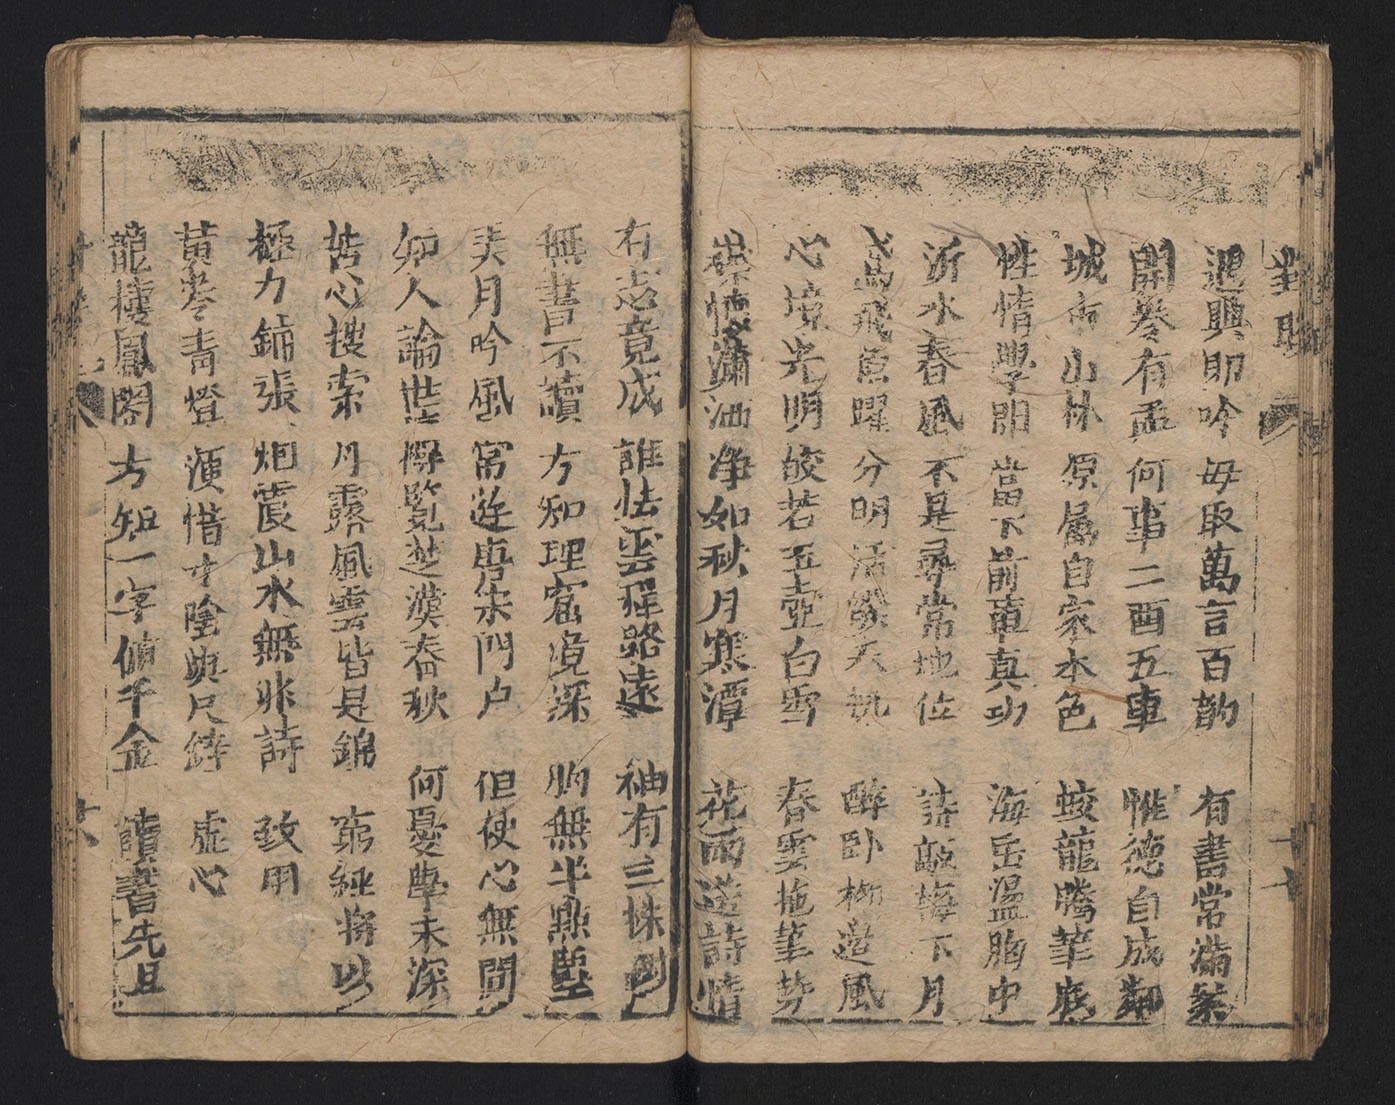 對聯
十七
遇興即吟 毋取萬言百韵 有書常滿案
開卷有孟 何事二酉五車 惟德自成鄰
城市山林 原屬自家本色 蛟龍騰筆底
性情學問 當下前車真功 海岳溫胸中
沂水春風 不是尋常地位 詩敲梅下月
鳶飛魚躍 分明活潑天机 醉卧柳邊風
心境光明 皎若玉壺白雪 春雲拖筆勢
襟懷瀟洒 净如秋月寒潭 花雨送詩情
有志竟成 誰怯雲程路遠 袖有三株
無書不讀 方知理窟境深 胸無半點塵
美月吟風 常遊唐宋門户 但使心無間
知人論世 慱覧楚漢春秋 何憂學未深
苦心搜索 月露風雲皆是錦 窮經將以
極力鋪張 烟霞山水無非詩 致用
黃卷青燈 須惜寸陰與尺時 虛心
龍樓鳳閣 方知一字值千金 讀書先且
十八